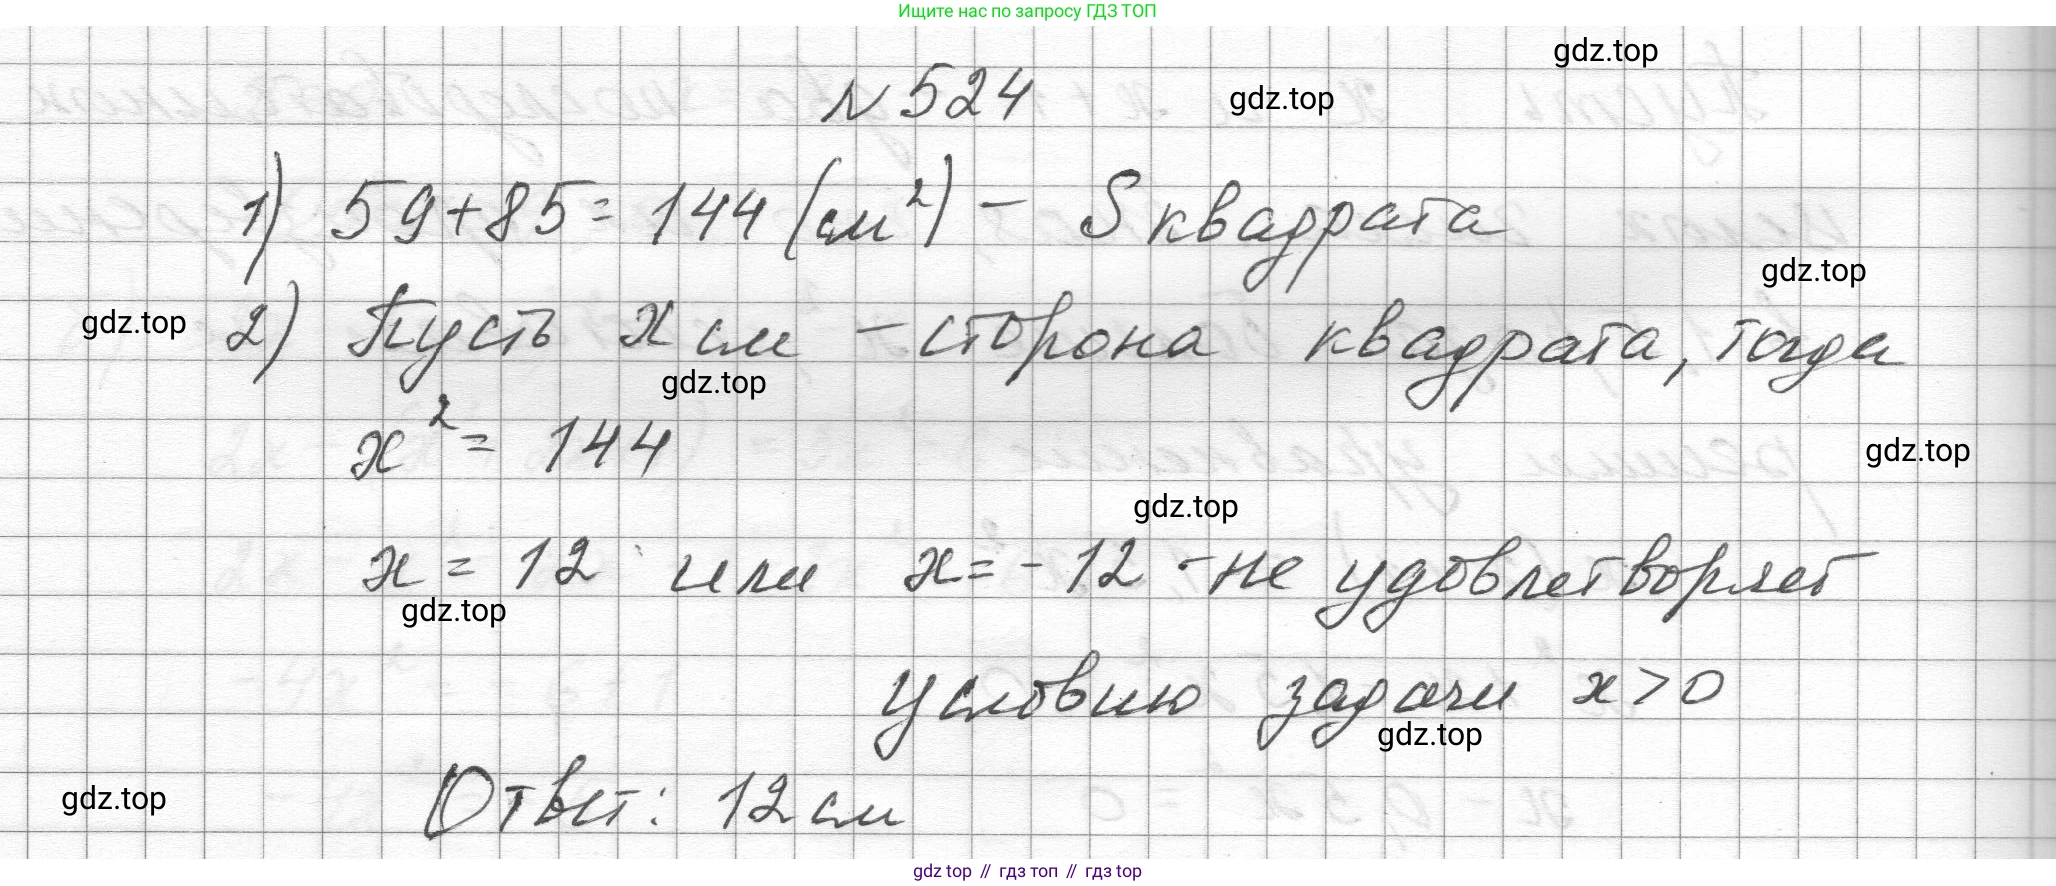 Ищите нас по запросу ГДЗ ТОП
gdz.top
№ 524
gdz.top
1) 59+85= 144 (см²) - S квадрата
gdz.top
gdz.top
2) Пусть x см - сторона квадрата, тогда
gdz.top
x² = 144
gdz.top
gdz.top
x = 12 или x = -12 - не удовлетворяет
gdz.top
условию задачи x > 0
gdz.top
gdz.top
Ответ: 12 см
gdz top // гдз топ // гдз top